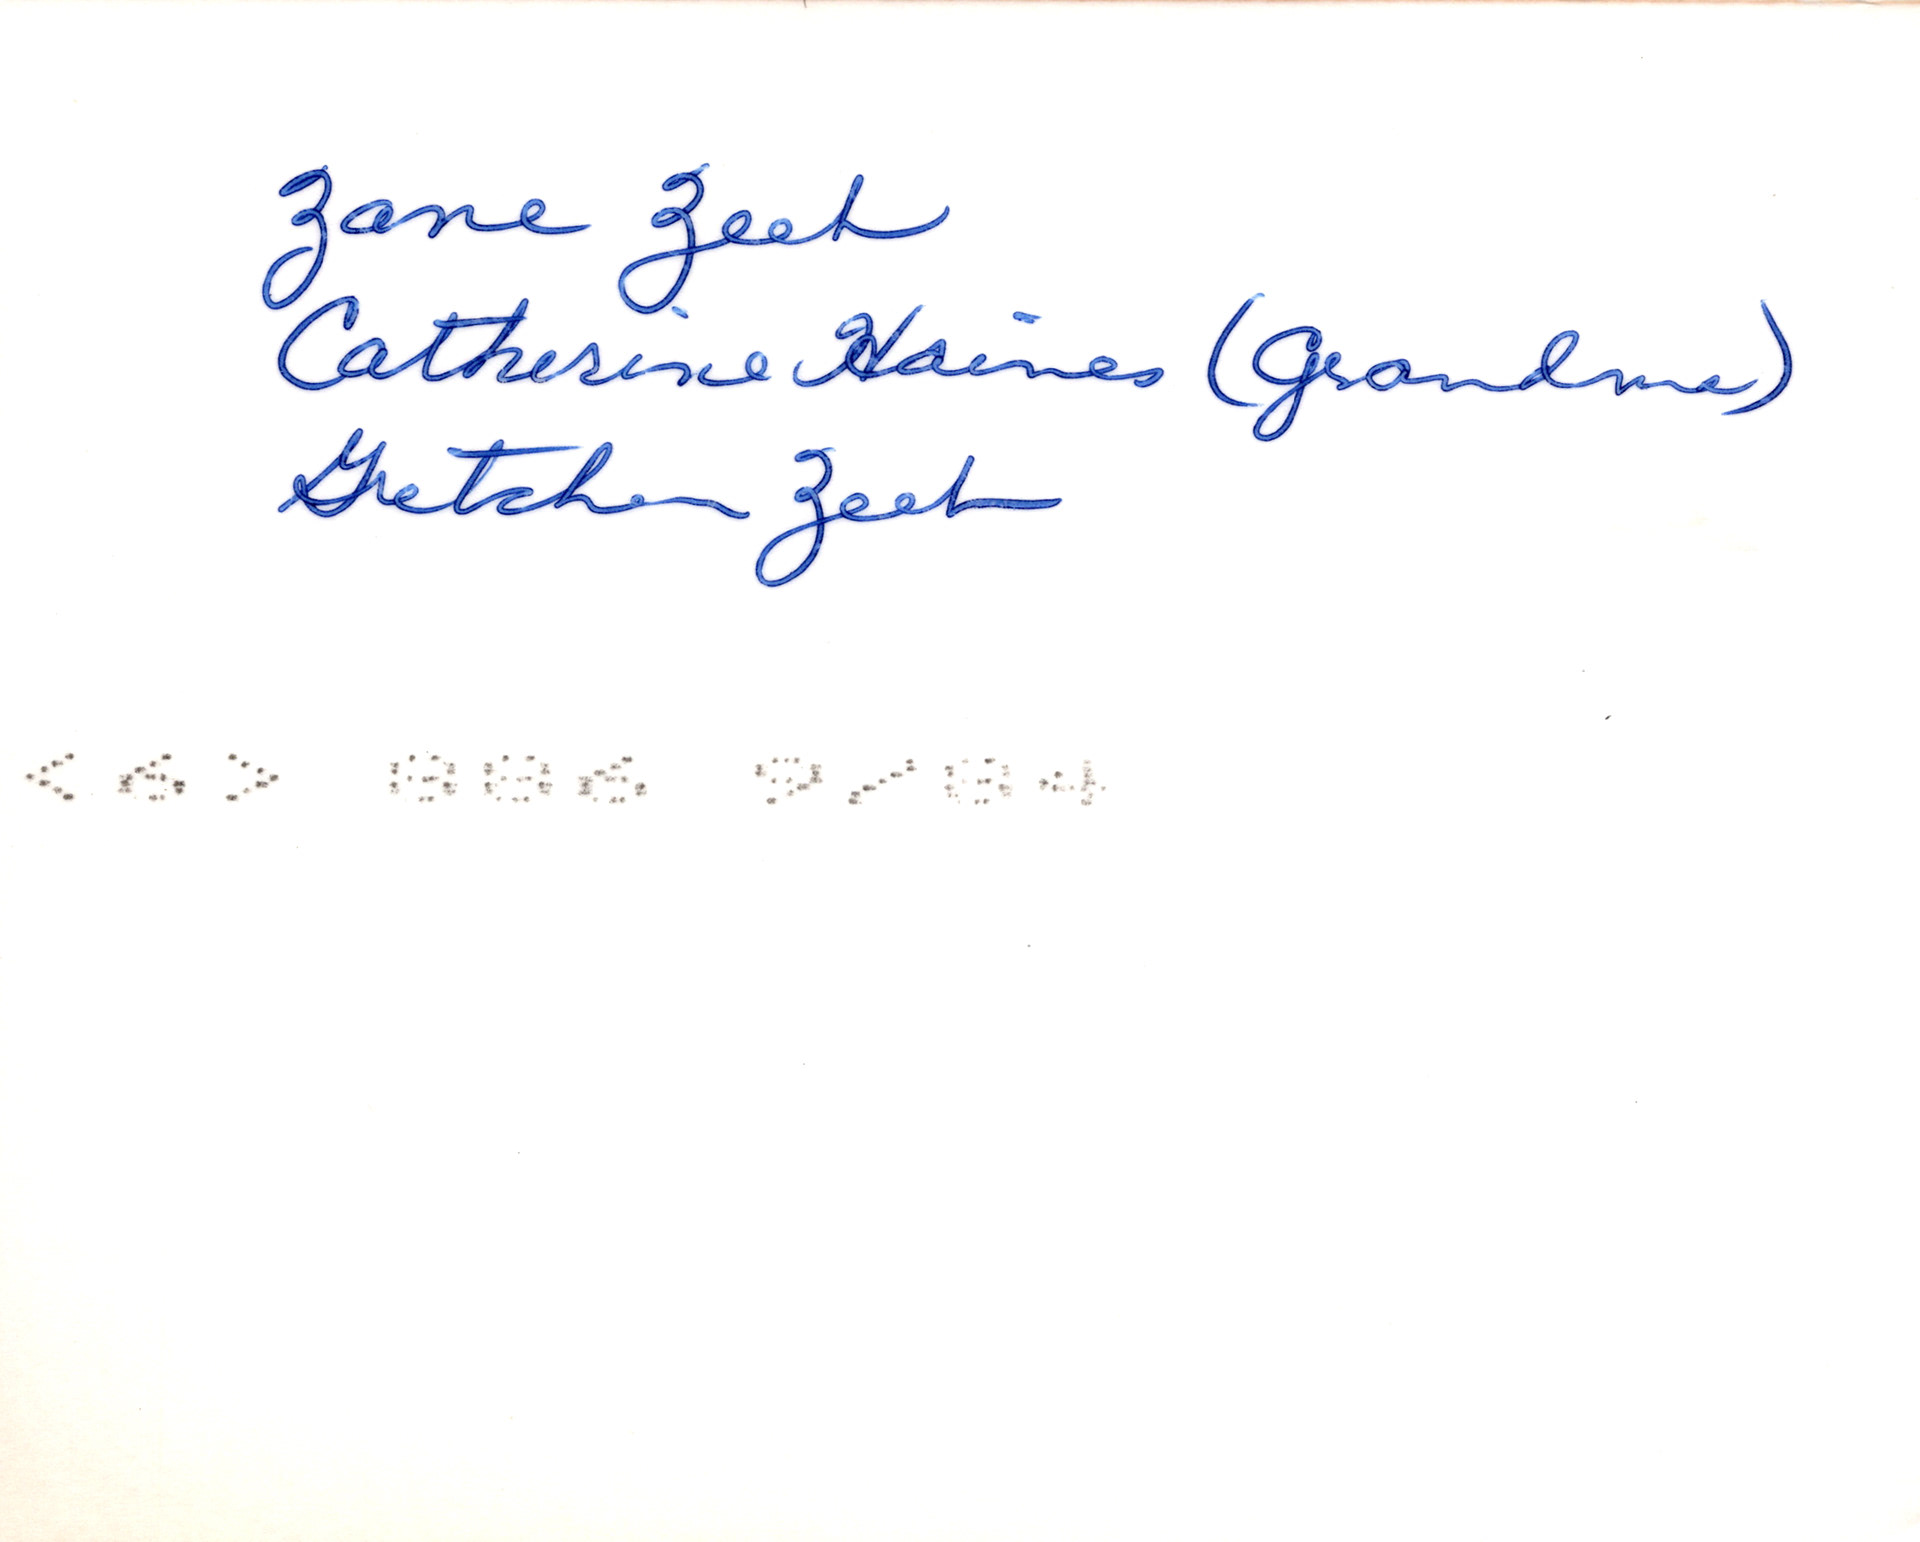 Zane Zeeh
Catherine Haines (Grandma)
Gretchen Zeeh
<6>